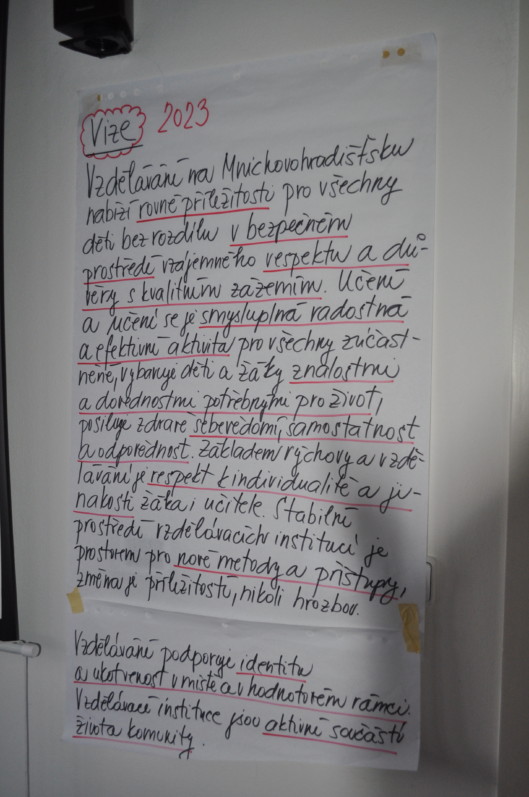 Vize 2023
Vzdělávání na Mnichovohradišťsku
nabízí rovné příležitosti pro všechny
děti bez rozdílu v bezpečném
prostředí vzájemného respektu a dů-
věry s kvalitním zázemím. Učení
a učení se je smysluplná radostná
a efektivní aktivita pro všechny zúčast-
něné, vybavuje děti a žáky znalostmi
a dovednostmi potřebnými pro život,
posiluje zdravé sebevědomí, samostatnost
a odpovědnost. Základem výchovy a vzdě-
lávání je respekt k individualitě a ji-
nakosti žáka i učitele. Stabilní
prostředí vzdělávacích institucí je
prostorem pro nové metody a přístupy,
změna je příležitostí, nikoli hrozbou.
Vzdělávání podporuje identitu
a ukotvenost v místě a v hodnotovém rámci.
Vzdělávací instituce jsou aktivní součástí
života komunity.